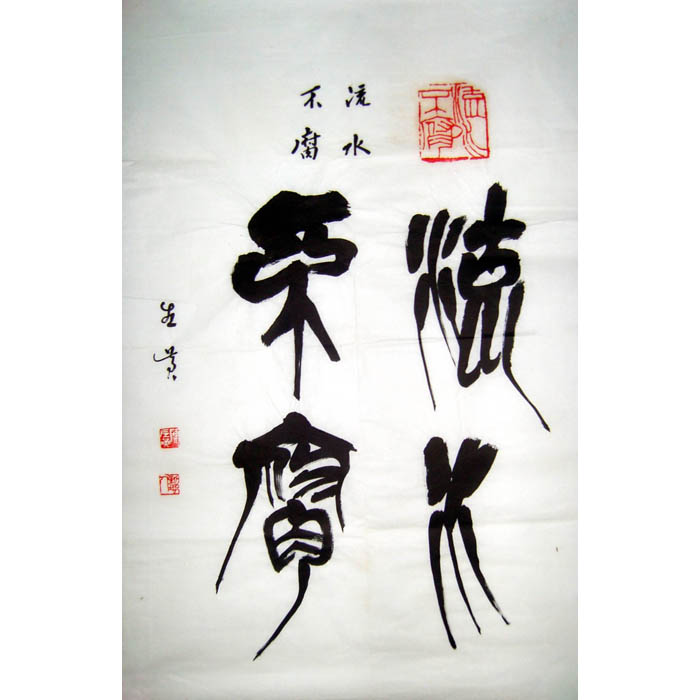 流水
不腐
流水
不腐